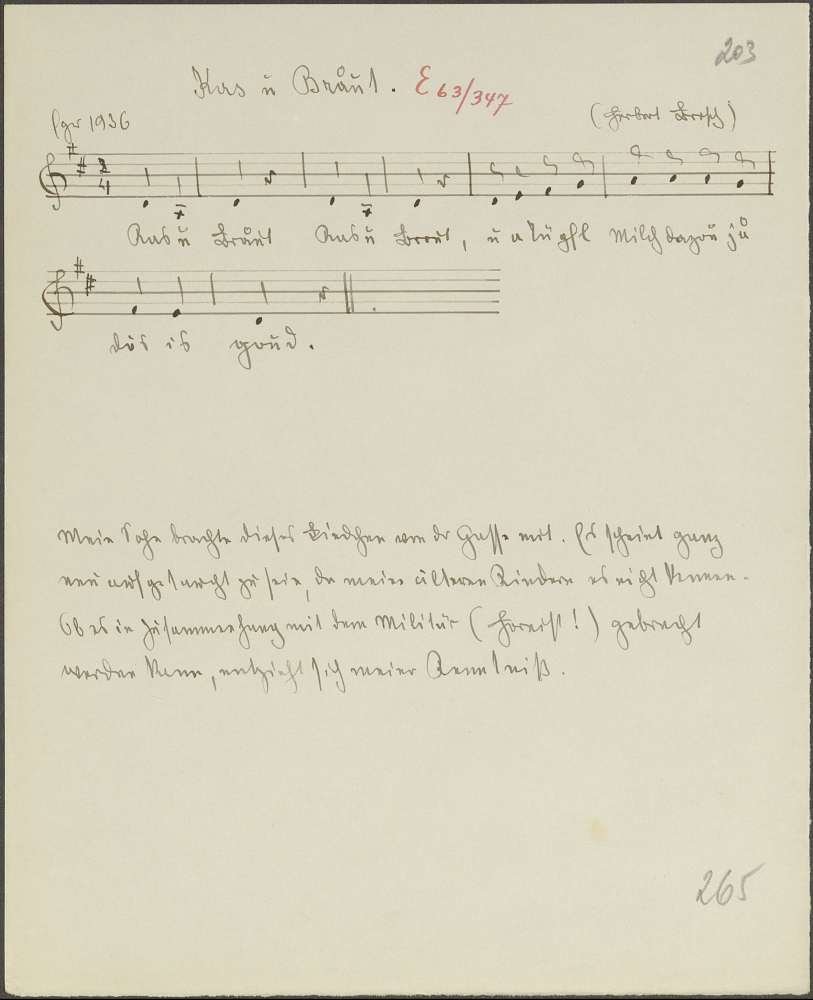 203
Kas ŭ Bråut. E 63/347
Eger 1936
(Herbert Brosch)
2
4
Kas ŭ Bråut Kas ŭ Braut, ŭ a Milch dazou jå
dös is goud.
Mein Sohn brachte dieses Liedchen von der Gasse mit. Es scheint ganz
neu aufgetaucht zu sein, da meine älteren Kindern es nicht kennen.
Ob es in Zusammenhang mit dem Militär (Hornist!) gebracht
werden kann, entzieht sich meiner Kenntniß.
265